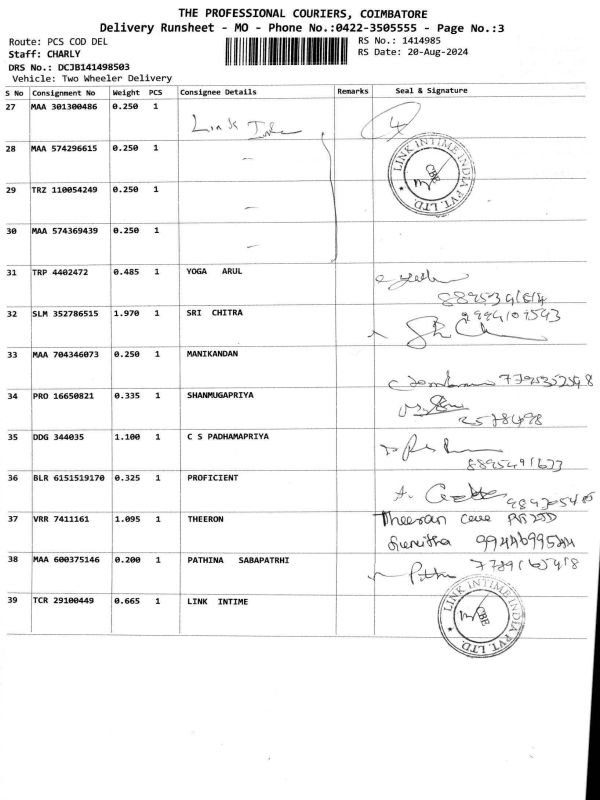 THE PROFESSIONAL COURIERS, COIMBATORE
Delivery Runsheet - MO - Phone No.:0422-3505555 - Page No.:3
Route: PCS COD DEL
RS No.: 1414985
Staff: CHARLY
RS Date: 20-Aug-2024
DRS No.: DCJB141498503
Vehicle: Two Wheeler Delivery
S No Consignment No Weight PCS Consignee Details Remarks Seal & Signature
27 MAA 301300486 0.250 1 Link
28 MAA 574296615 0.250 1
LINK INTIME INDIA PVT. LTD. CBE
29 TRZ 110054249 0.250 1
30 MAA 574369439 0.250 1
31 TRP 4402472 0.485 1 YOGA ARUL
32 SLM 352786515 1.970 1 SRI CHITRA
33 MAA 704346073 0.250 1 MANIKANDAN
34 PRO 16650821 0.335 1 SHANMUGAPRIYA
35 DDG 344035 1.100 1 C S PADHAMAPRIYA
36 BLR 6151519170 0.325 1 PROFICIENT
37 VRR 7411161 1.095 1 THEERON Theeran
38 MAA 600375146 0.200 1 PATHINA SABAPATRHI
39 TCR 29100449 0.665 1 LINK INTIME
LINK INTIME INDIA PVT. LTD. CBE